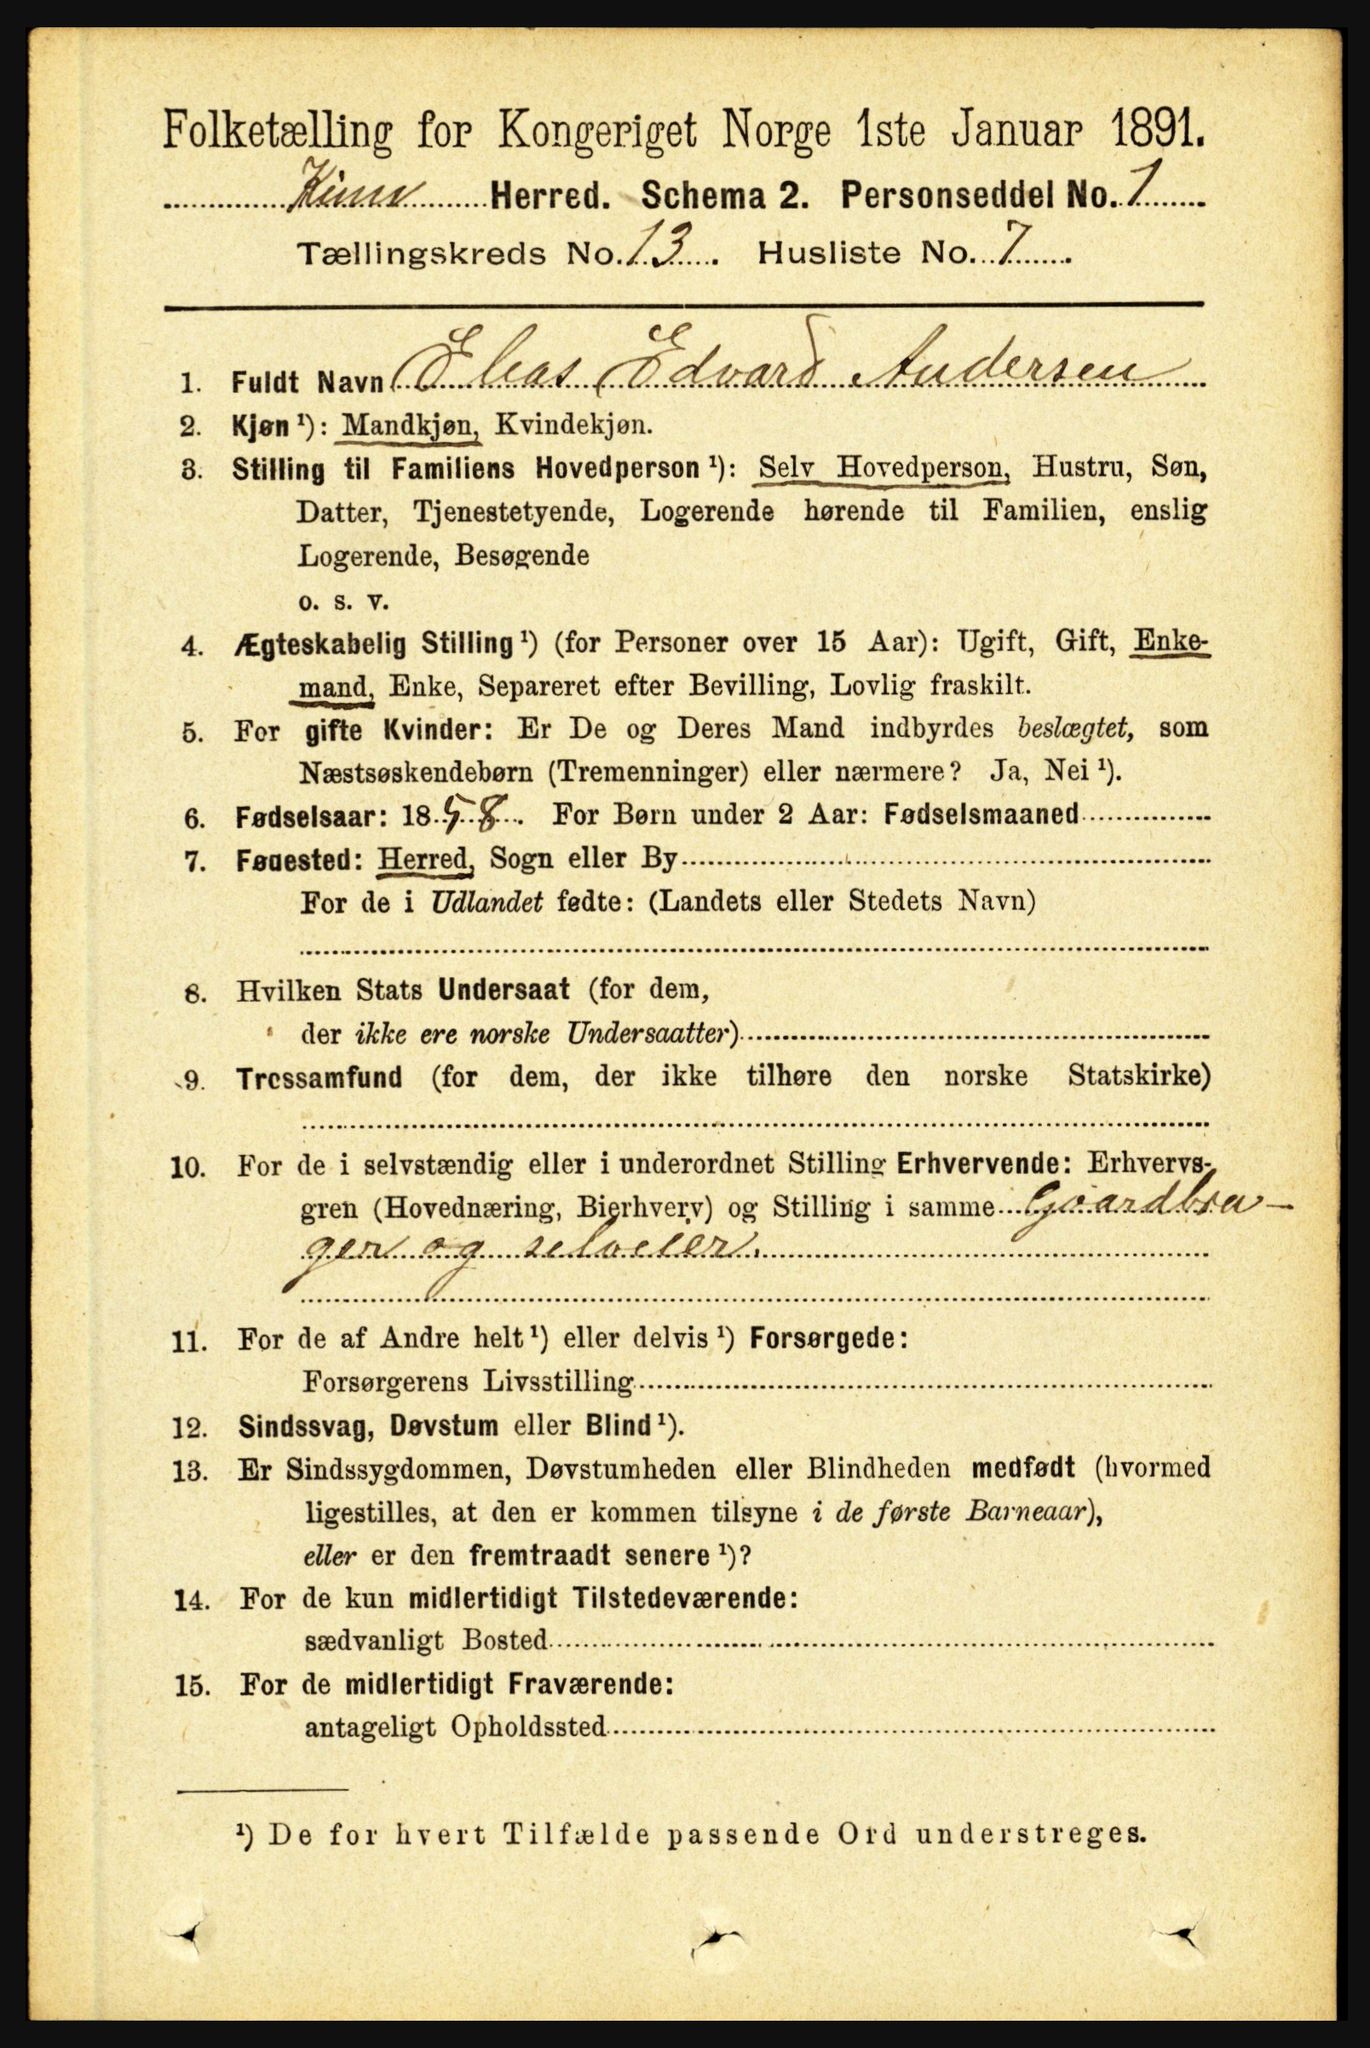 Folketælling for Kongeriget Norge 1ste Januar 1891.
Kinn Herred. Schema 2. Personseddel No. 1
Tællingskreds No. 13. Husliste No. 7
1. Fuldt Navn Elias Edvard Andersen
2. Kjøn ¹): Mandkjøn, Kvindekjøn.
3. Stilling til Familiens Hovedperson ¹): Selv Hovedperson, Hustru, Søn,
Datter, Tjenestetyende, Logerende hørende til Familien, enslig
Logerende, Besøgende
o. s. v.
4. Ægteskabelig Stilling ¹) (for Personer over 15 Aar): Ugift, Gift, Enke-
mand, Enke, Separeret efter Bevilling, Lovlig fraskilt.
5. For gifte Kvinder: Er De og Deres Mand indbyrdes beslægtet, som
Næstsøskendebørn (Tremenninger) eller nærmere? Ja, Nei ¹).
6. Fødselsaar: 1858. For Børn under 2 Aar: Fødselsmaaned
7. Fødested: Herred, Sogn eller By
For de i Udlandet fødte: (Landets eller Stedets Navn)
8. Hvilken Stats Undersaat (for dem,
der ikke ere norske Undersaatter)
9. Trossamfund (for dem, der ikke tilhøre den norske Statskirke)
10. For de i selvstændig eller i underordnet Stilling Erhvervende: Erhvervs-
gren (Hovednæring, Bierhverv) og Stilling i samme Gaardbru-
ger og selveier.
11. For de af Andre helt ¹) eller delvis ¹) Forsørgede:
Forsørgerens Livsstilling
12. Sindssvag, Døvstum eller Blind ¹).
13. Er Sindssygdommen, Døvstumheden eller Blindheden medfødt (hvormed
ligestilles, at den er kommen tilsyne i de første Barneaar),
eller er den fremtraadt senere ¹)?
14. For de kun midlertidigt Tilstedeværende:
sædvanligt Bosted
15. For de midlertidigt Fraværende:
antageligt Opholdssted
¹) De for hvert Tilfælde passende Ord understreges.